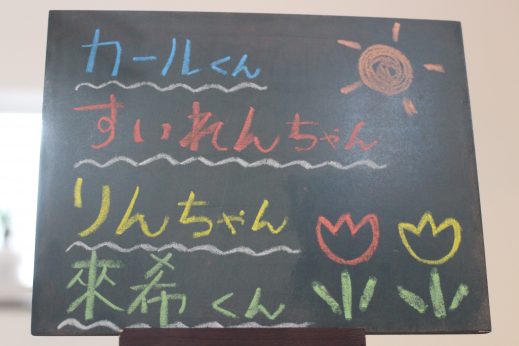 カールくん
すいれんちゃん
りんちゃん
來希くん